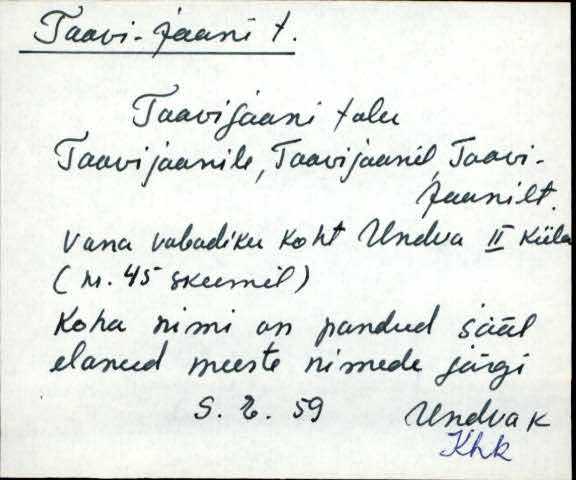 Taavi-Jaani t.
Taavijaani talu
Taavijaanile, Taavijaanil, Taavi-
Jaanilt.
Vana vabadiku koht Undva II küla
(N. 45 skeemil)
Koha nimi on pandud sääl
elanud meeste nimede järgi
S. E. 59 Undva k
Khk